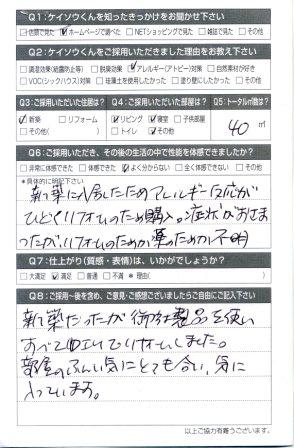 Q1：ケイソウくんを知ったきっかけをお聞かせ下さい
□店頭で見た ☑ホームページで調べた □NETショッピングで見た □雑誌で見た □その他
Q2：ケイソウくんをご採用いただきました理由をお教え下さい
□調湿効果(結露防止等) □脱臭効果 ☑アレルギー(アトピー)対策 □自然素材が好き
□VOC(シックハウス)対策 □珪藻土を使用したかった □塗り壁にしたかった □その他
Q3：ご採用いただいた住居は？ Q4：ご採用いただいた部屋は？ Q5：トータル㎡数は？
☑新築 □リフォーム
□その他( )
☑リビング ☑寝室 □子供部屋
□トイレ ☑その他
40 ㎡
Q6：ご採用いただき、その後の生活の中で性能を体感できましたか？
□非常に体感できた □体感できた ☑よく分からない □全く体感できない □その他
*具体的に明記下さい
新築に入居したためアレルギー反応が
ひどくリフォームのため購入。症状がおさま
ったがリフォームのためか薬のためか不明
Q7：仕上がり(質感・表情)は、いかがでしょうか？
□大満足 ☑満足 □普通 □不満 * 理由( )
Q8：ご採用一後を含め、ご意見・ご感想ございましたらご自由にご記入下さい
新築だったが御社製品を使い
すべて自力でリフォームしました。
部屋のふんい気にとても合い、気に
入っています。
以上ご協力有難うございます。